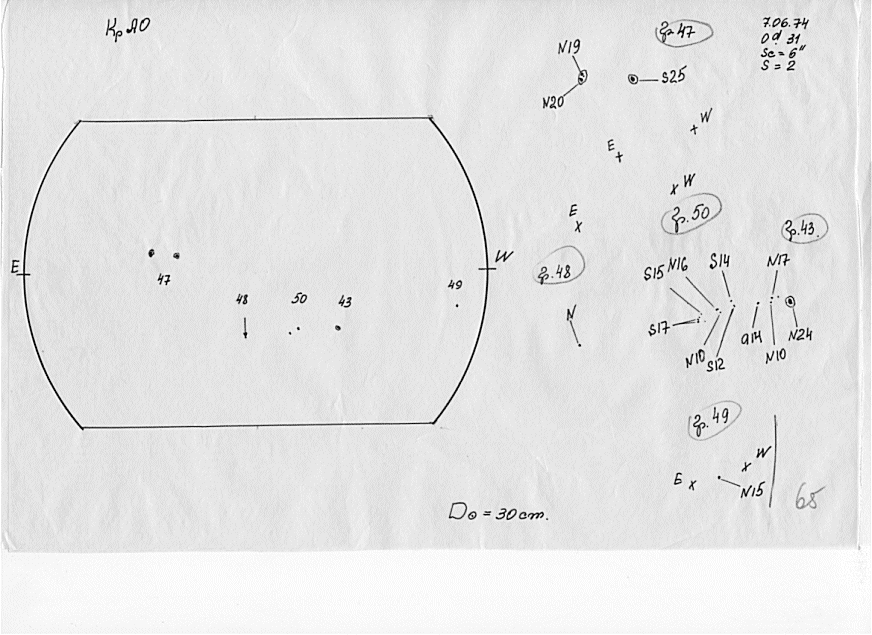 КрАО
7.06.74
0d. 31
Sc = 6"
S = 2
гр. 47
N19
N20
S25
E
W
E
W
47
48
50
43
49
E
W
гр. 50
гр. 43.
гр. 48
S15 N16
S14
N17
N
S17
N10
S12
α14
N10
N24
гр. 49
E
W
N15
D⊙ = 30 cm.
65